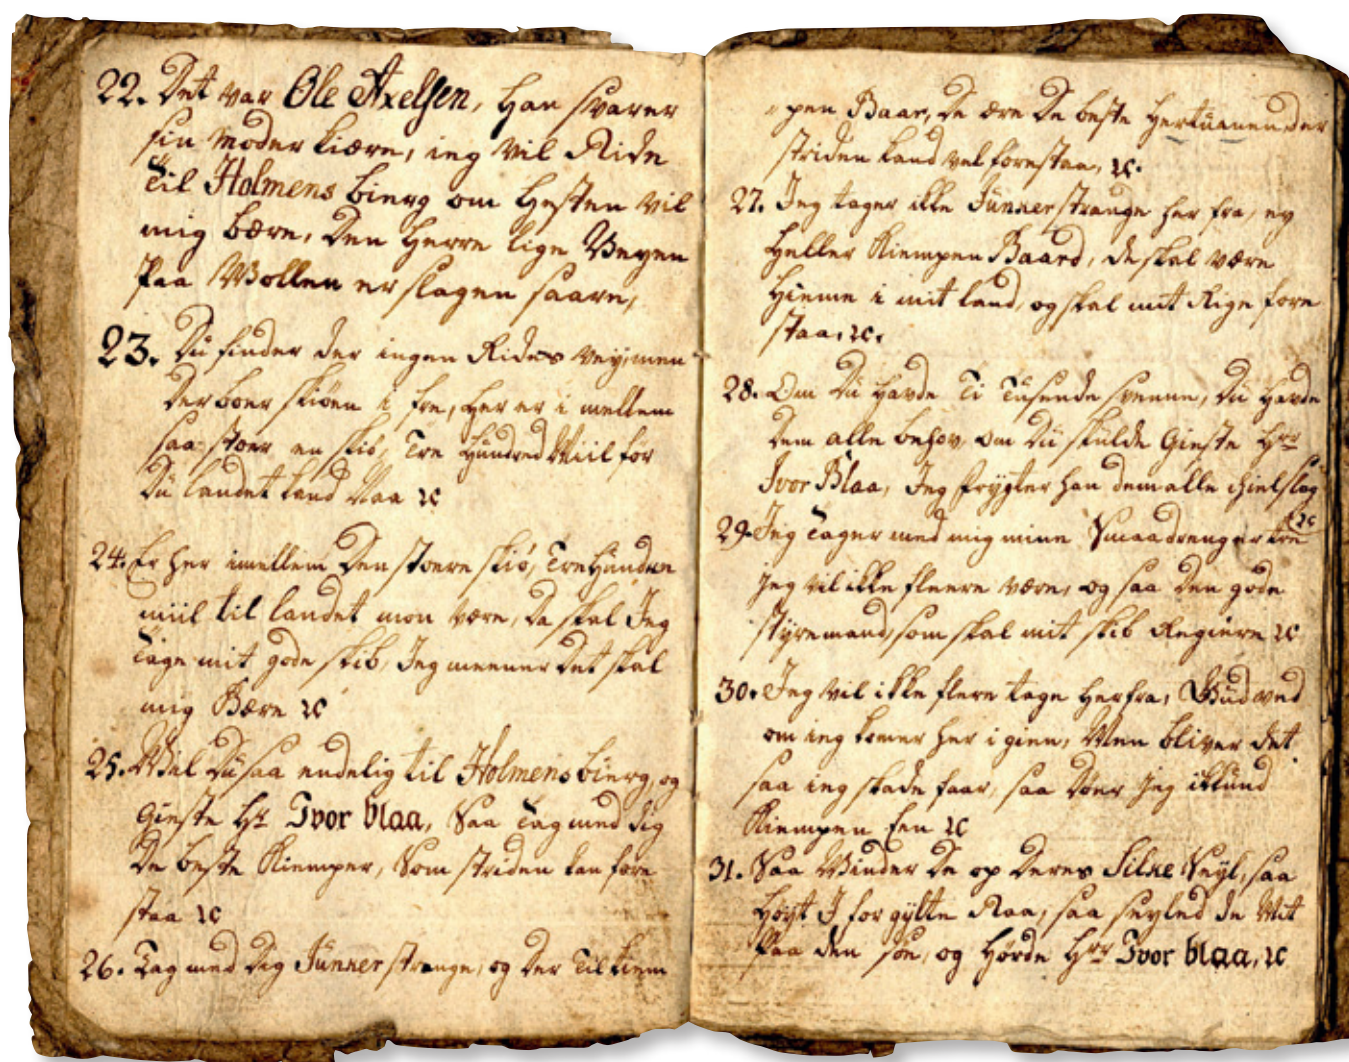 22. Det var Ole Axelsen, han svarer
sin Moder kiære, ieg vil Ride
til Holmens bierg om Hesten vil
mig bære, Den Herre lige Veyen
paa Wollen er slagen saare,
23. Du finder der ingen Rides Vey, men
Der boer skiøen i
saa stoer en skio, Tre Hundred Miil før
Du landet kand Naa ꝛc
24. Er her imellem Den stoere skio, Tre Hundre
miil til landet mon være, Da skal Jeg
tage mit gode skib, Jeg meener Det skal
mig Bære ꝛc
25. Wil Du saa endelig til Holmens bierg, og
Gieste Hr Ivor blaa, Saa tag med dig
De beste Kiemper, Som striden kan fore
staa ꝛc
26. Tag med Dig Junker strange, og Der til kiem
pen Baar, De ere De beste
striden kand vel forestaa, ꝛc.
27. Jeg tager ikke Junker strange her fra, ey
heller Kiempen Baard, de skal være
Hieme i mit land, og skal mit Rige fore
staa, ꝛc.
28. Om Du havde Ti Tusende svenne, Du havde
Dem alle behov om Du skulde Gieste Hrr
Ivor Blaa, Jeg frygter han dem alle ihielslog
ꝛc
29. Jeg tager med mig mine Smaadrenger tre
jeg vil ikke fleere være, og saa Den gode
styremand, som skal mit skib Regiere ꝛc
30. Jeg vil ikke flere tage herfra, Gud veed
om ieg komer her i gien, Men bliver det
saa ieg skade faar, saa Døer Jeg
Kiempen Een ꝛc
31. Saa Winder De op Deres Silke Seyl, saa
Høyt I forgylte Raa, saa seyled de Vit
paa den søe, og Hørde Hrr Ivor blaa, ꝛc